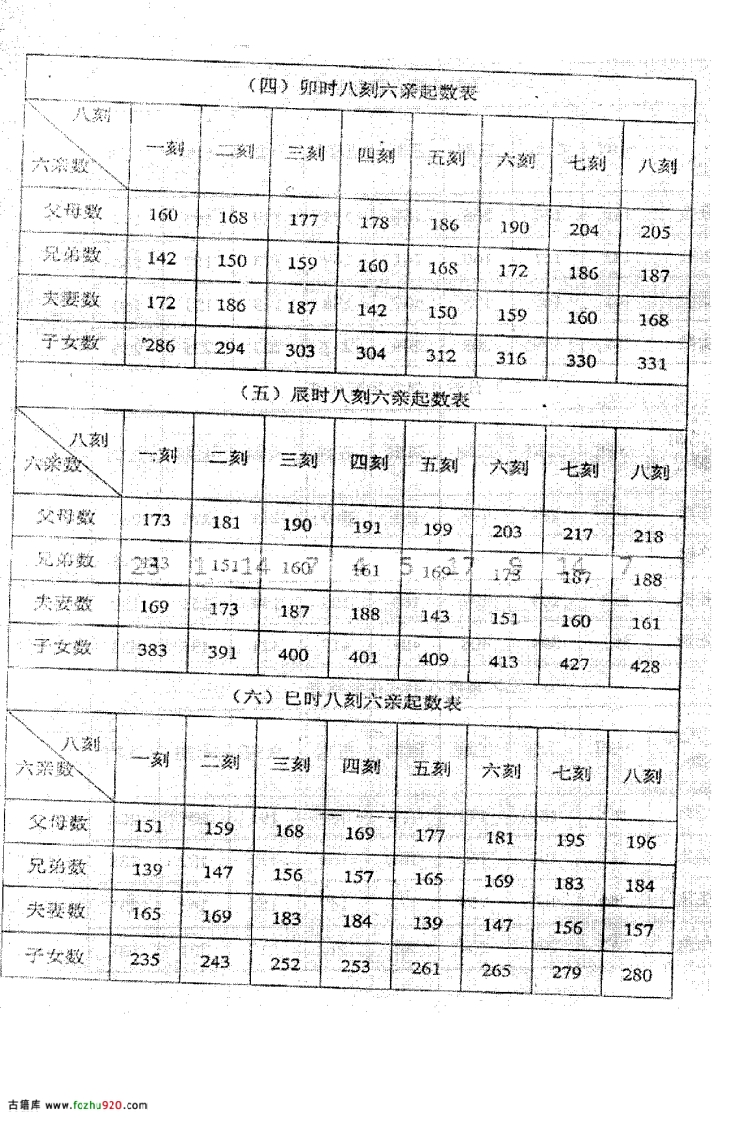 （四）卯时八刻六亲起数表
八刻
六亲数 一刻 二刻 三刻 四刻 五刻 六刻 七刻 八刻
父母数 160 168 177 178 186 190 204 205
兄弟数 142 150 159 160 168 172 186 187
夫妻数 172 186 187 142 150 159 160 168
子女数 286 294 303 304 312 316 330 331
（五）辰时八刻六亲起数表
八刻
六亲数 一刻 二刻 三刻 四刻 五刻 六刻 七刻 八刻
父母数 173 181 190 191 199 203 217 218
兄弟数 143 151 160 161 169 173 187 188
夫妻数 169 173 187 188 143 151 160 161
子女数 383 391 400 401 409 413 427 428
（六）巳时八刻六亲起数表
八刻
六亲数 一刻 二刻 三刻 四刻 五刻 六刻 七刻 八刻
父母数 151 159 168 169 177 181 195 196
兄弟数 139 147 156 157 165 169 183 184
夫妻数 165 169 183 184 139 147 156 157
子女数 235 243 252 253 261 265 279 280
古籍库 www.fozhu920.com